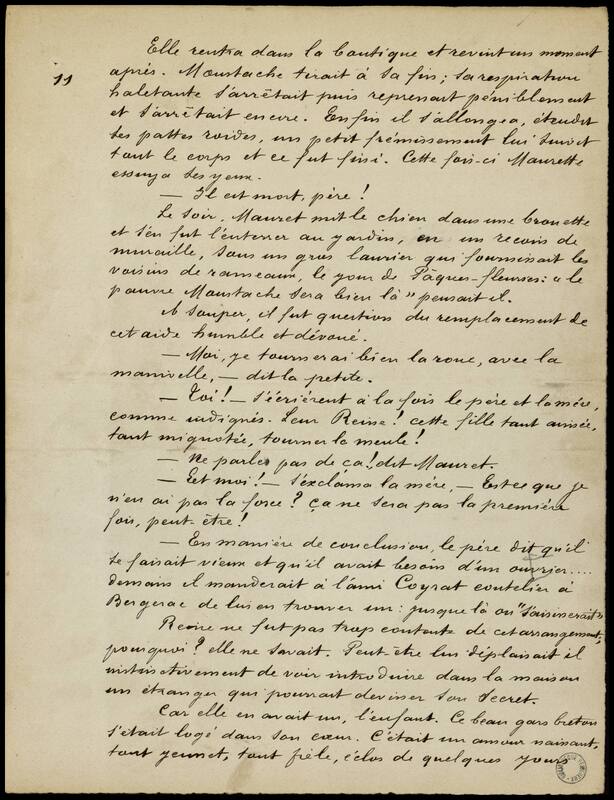 Elle rentra dans la boutique et revint un moment
11
après. Moustache tirait à sa fin ; sa respiration
haletante s'arrêtait puis reprenait péniblement
et s'arrêtait encore. Enfin il s'allongea, étendit
ses pattes roides, un petit frémissement lui suivit
tout le corps et ce fut fini. Cette fois-ci Maurette
essuya ses yeux.
— Il est mort, père !
Le soir, Mauret mit le chien dans une brouette
et s'en fut l'enterrer au jardin, en un recoins de
muraille, sous un gros laurier qui fournissait les
voisins de rameaux, le jour de Pâques-fleuries : « le
pauvre Moustache sera bien là » pensait il.
A souper, il fut question du remplacement de
cet aide humble et dévoué.
— Moi, je tournerai bien la roue, avec la
manivelle, — dit la petite.
— Toi ! — s'écrièrent à la fois le père et la mère,
comme indignés. Leur Reine ! cette fille tant aimée,
tant mignotée, tourner la meule !
— Ne parle pas de ça ! dit Mauret.
— Et moi ! — s'exclama la mère, — Est ce que je
n'en ai pas la force ? Ça ne sera pas la première
fois, peut-être !
— En manière de conclusion, le père dit qu'il
se faisait vieux et qu'il avait besoin d'un ouvrier....
demain il manderait à l'ami Coyrat coutelier à
Bergerac de lui en trouver un : jusque là on "s'aisinerait"
Reine ne fut pas trop contente de cet arrangement,
pourquoi ? elle ne savait. Peut être lui déplaisait il
instinctivement de voir introduire dans la maison
un étranger qui pourrait deviner son secret.
Car elle en avait un, l'enfant. Ce beau gars breton
s'était logé dans son cœur. C'était un amour naissant,
tout jeunet, tout frêle, éclos de quelques jours